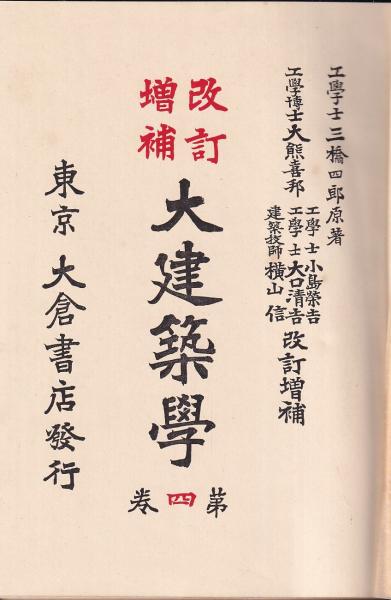 工學士三橋四郎原著
工學博士大熊喜邦
工學士小島榮吉
工學士大口清吉
建築技師横山信
改訂増補
改訂
増補
大建築學
第四卷
東京大倉書店發行